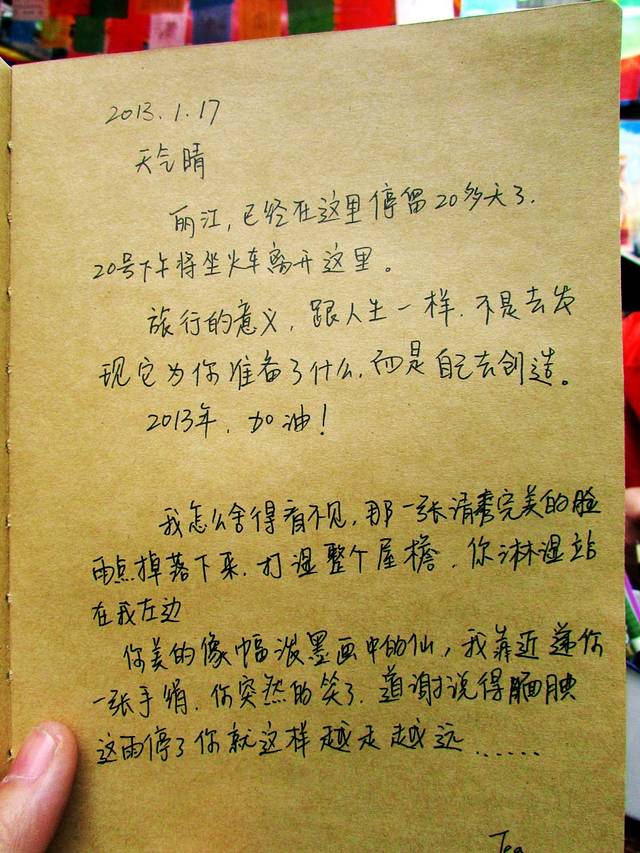 2013.1.17
天气晴
丽江,已经在这里停留20多天了.
20号下午将坐火车离开这里。
旅行的意义,跟人生一样.不是去发
现它为你准备了什么,而是自己去创造。
2013年,加油!
我怎么舍得看不见,那一张清秀完美的脸
雨点掉落下来.打湿整个屋檐.你淋湿站
在我左边
你美的像幅泼墨画中的仙,我靠近递你
一张手绢.你突然的笑了.道谢说得腼腆
这雨停了你就这样越走越远......
Tea